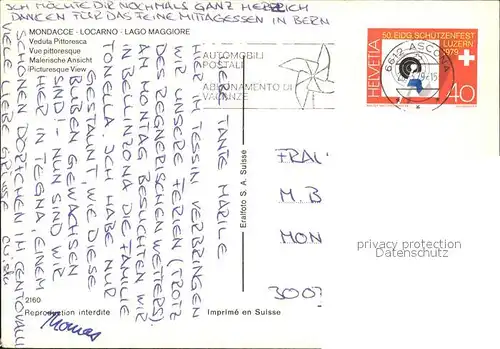 ICH MÖCHTE DIR NOCHMALS GANZ HERZLICH
DANKEN FÜR DAS FEINE MITTAGESSEN IN BERN
MONDACCE - LOCARNO - LAGO MAGGIORE
Veduta Pittoresca
Vue pittoresque
Malerische Ansicht
Picturesque View
AUTOMOBILI
POSTALI
ABBONAMENTO DI
VACANZE
HELVETIA
50. EIDG. SCHÜTZENFEST
LUZERN
1979
40
6612 ASCONA
LIEBE TANTE MARILE
HIER IM TESSIN VERBRINGEN
WIR UNSERE FERIEN (TROTZ
DES REGNERISCHEN WETTERS).
AM MONTAG BESUCHTEN WIR
IN BELLINZONA DIE FAMILIE
TONELLA. ICH HABE NUR
GESTAUNT WIE DIESE
BUBEN GEWACHSEN
SIND! - NUN SIND WIR
HIER IN TEGNA, EINEM
SCHÖNEN DÖRFCHEN IM CENTOVALLI
VIELE LIEBE GRÜSSE
Thomas
Eralfoto S. A. Suisse
FRAU
M. B
MON
3007
privacy protection
Datenschutz
2160
Reproduction interdite
Imprimé en Suisse